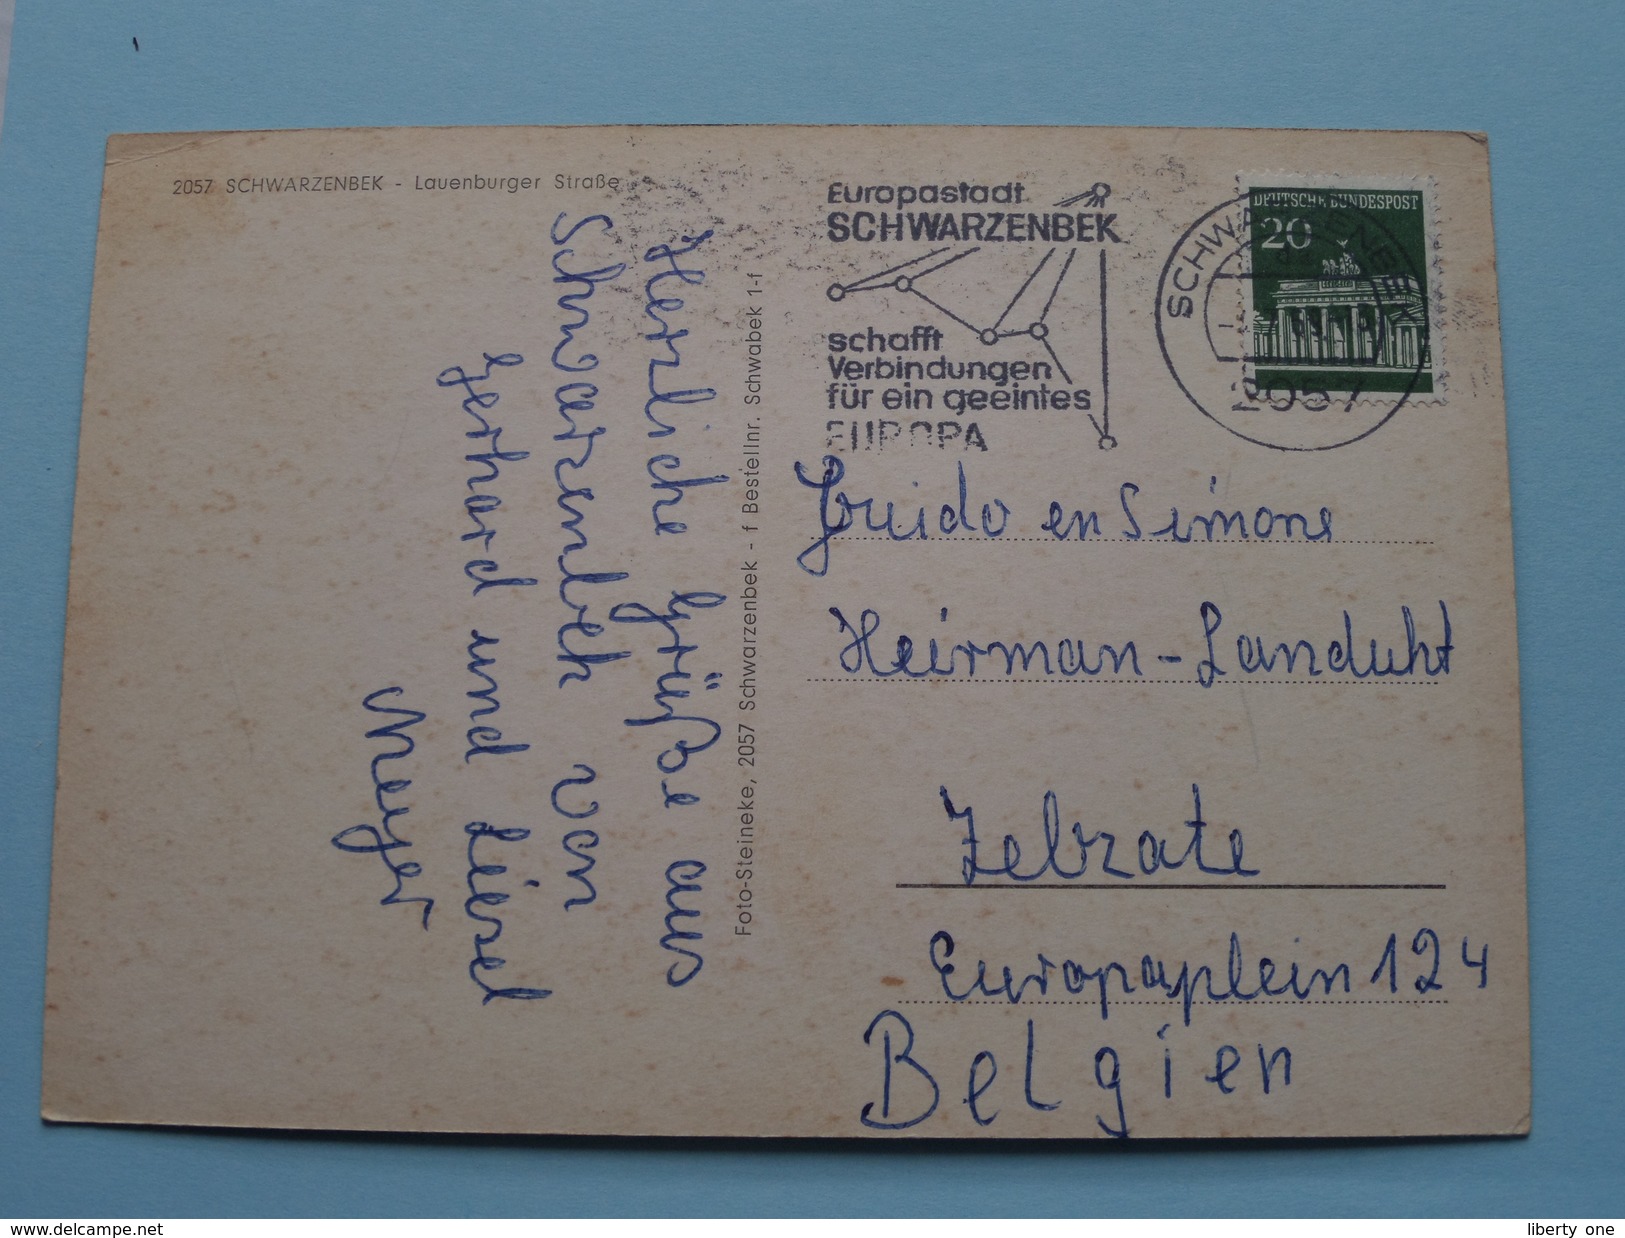 2057 SCHWARZENBEK - Lauenburger Straße
Herzliche Grüße aus
Schwarzenbek von
Gerhard und Liesel
Meyer
Foto-Steineke, 2057 Schwarzenbek - f Bestellnr. Schwabek 1-f
Europastadt
SCHWARZENBEK
schafft
Verbindungen
für ein geeintes
EUROPA
SCHWARZENBEK
2057
DEUTSCHE BUNDESPOST
20
Guido en Simone
Heirman-Landuht
Zelzate
Europaplein 124
Belgien
http://www.delcampe.net
liberty one